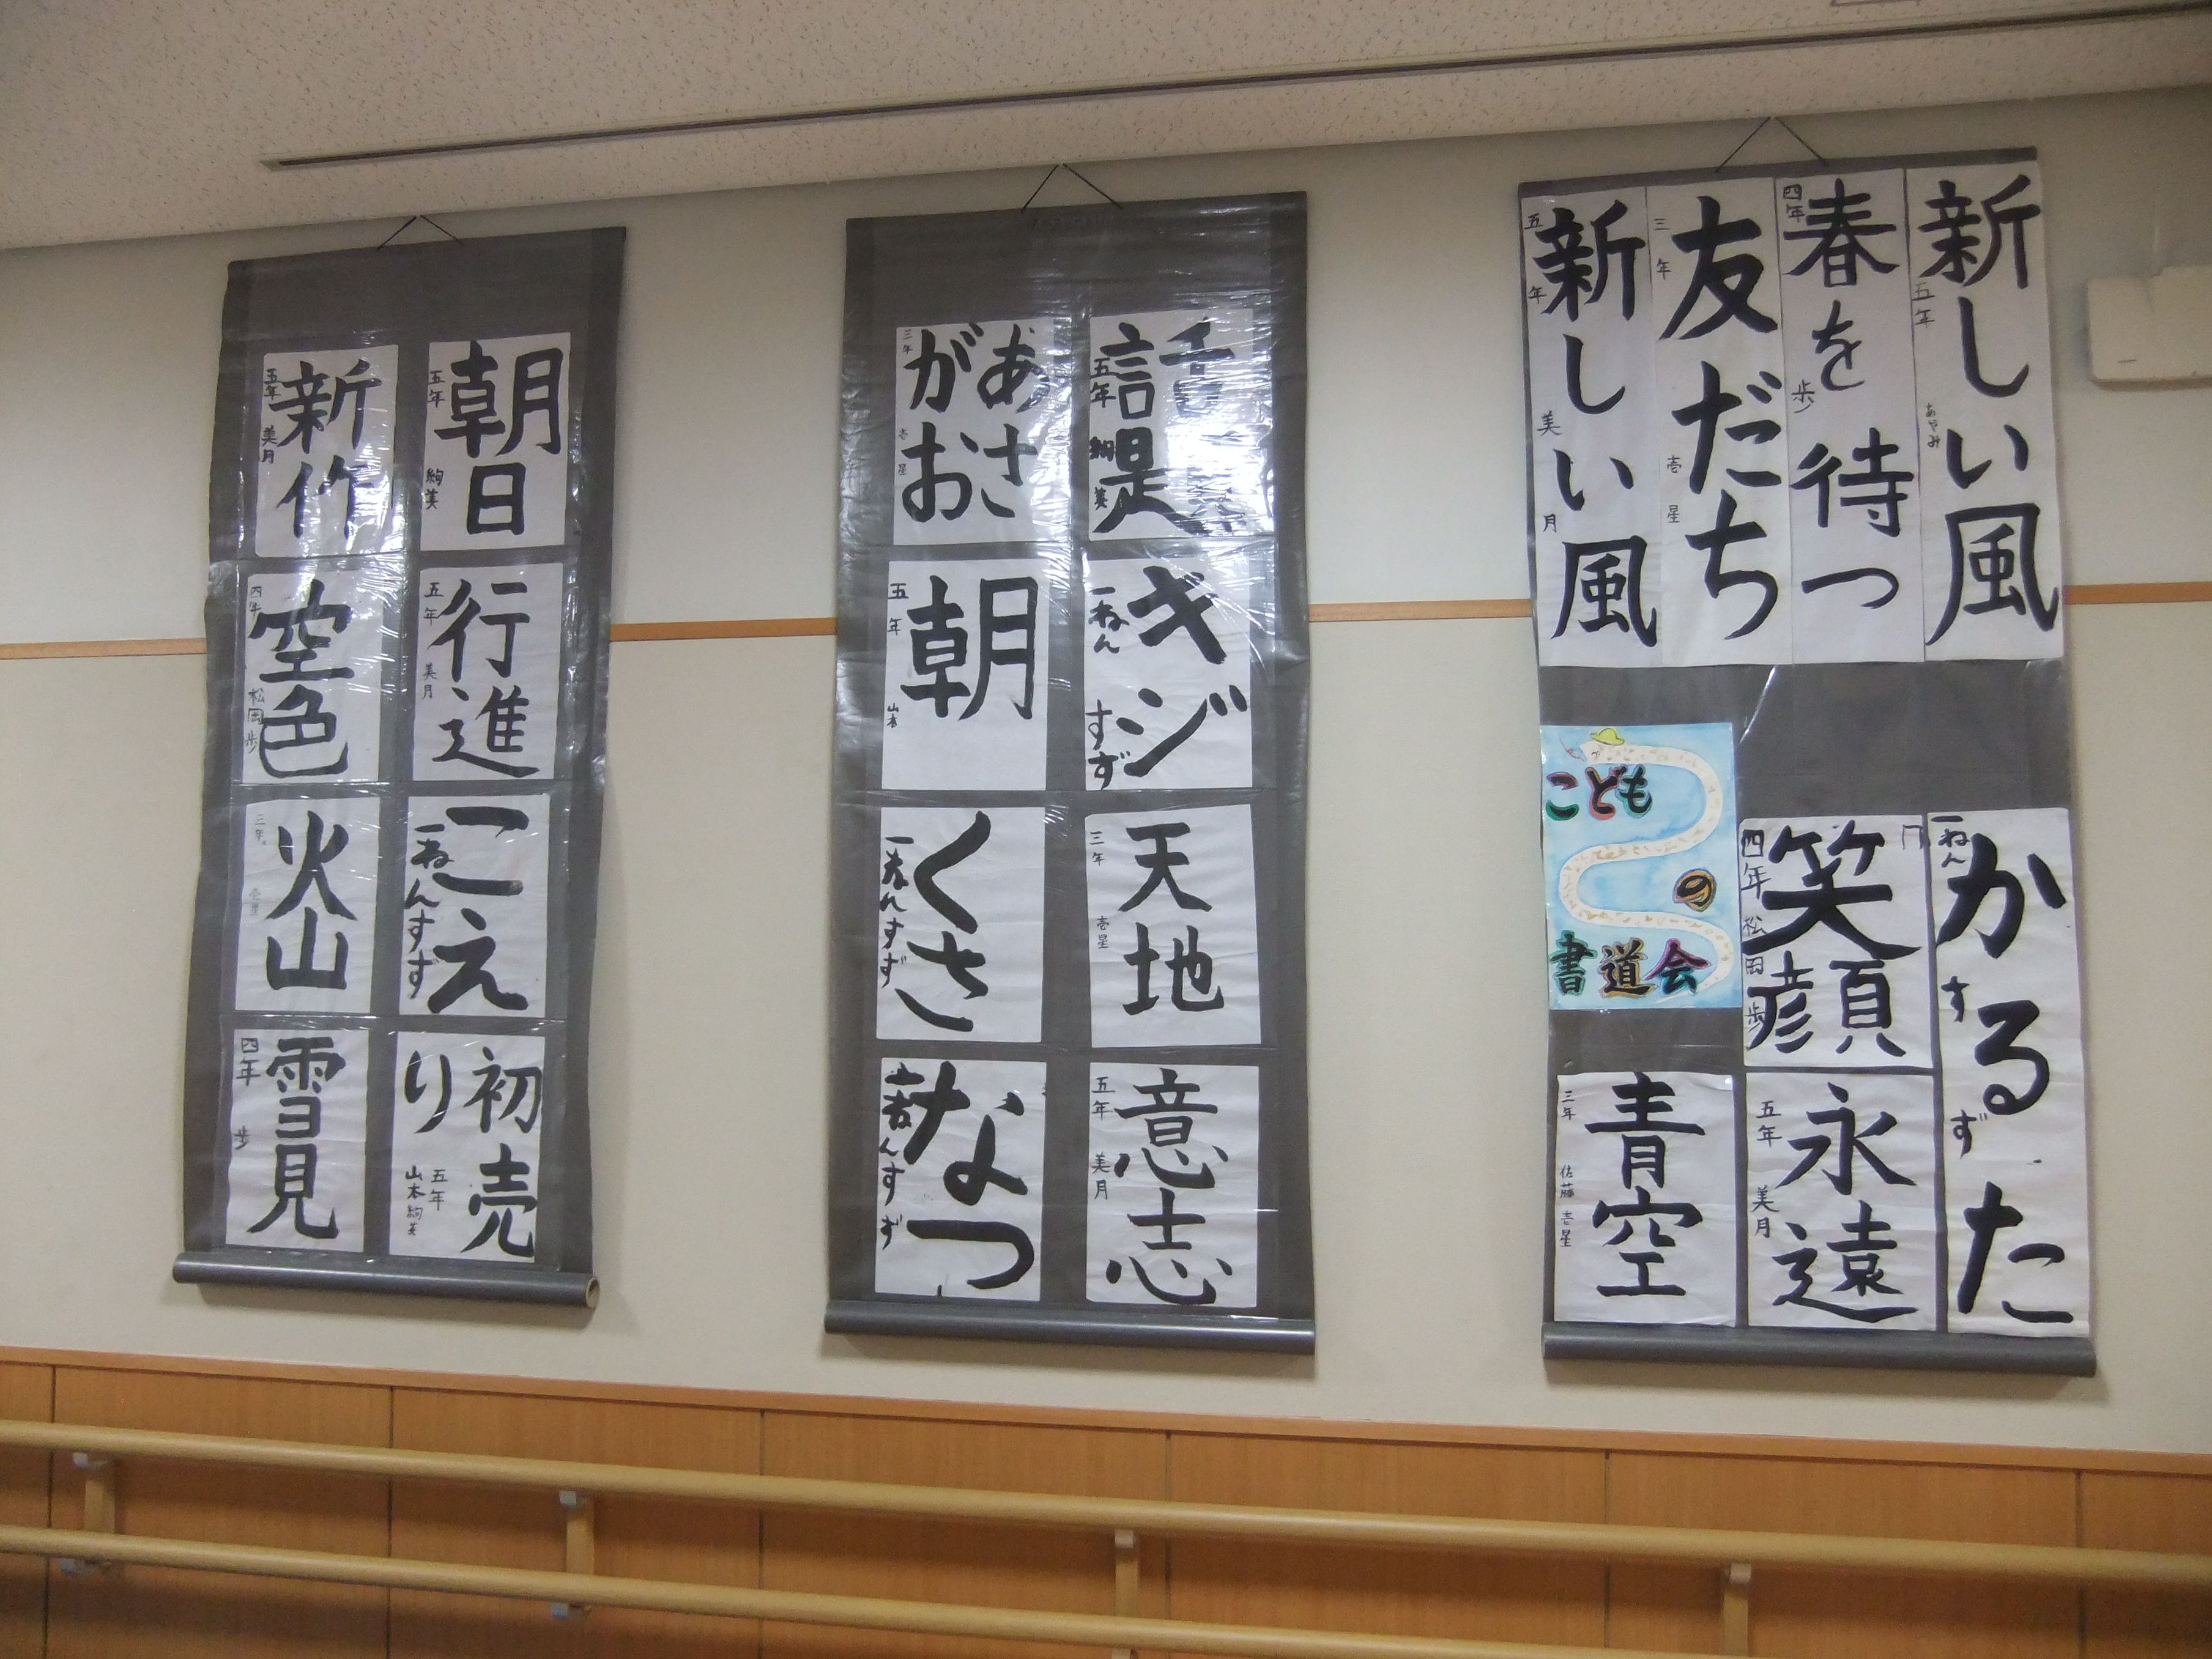 新しい風
五年
あやみ
春を待つ
四年
歩
友だち
三年
壱星
新しい風
五年
美月
こども
の
書道会
かるた
一ねん
すず
笑顔
四年
松岡歩
永遠
五年
美月
青空
三年
佐藤壱星
五年
絢美
キジ
一ねん
すず
天地
三年
壱星
意志
五年
美月
あさ
がお
三年
壱星
朝
五年
山本
くさ
すず
なつ
すず
朝日
五年
絢美
行進
五年
美月
こえ
一ねんすず
初売
り
五年
山本絢美
新作
五年
美月
空色
四年
松岡歩
火山
三年
壱星
雪見
四年
歩